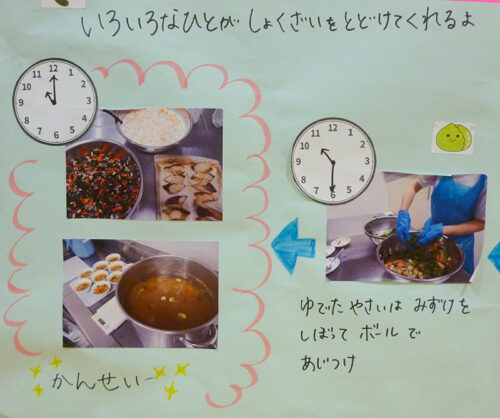 いろいろなひとが しょくざいをとどけてくれるよ
11 12 1
10 2
9 3
8 4
7 6 5
11 12 1
10 2
9 3
8 4
7 6 5
ゆでた やさいは みずけを
しぼって ボールで
あじつけ
かんせいー